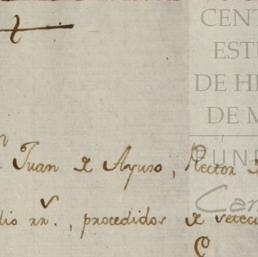 CENT
EST
DE H
DE M
FUN
Car
n Juan de Ayuso, Rector
dio rr.ˢ, procedidos de seteci